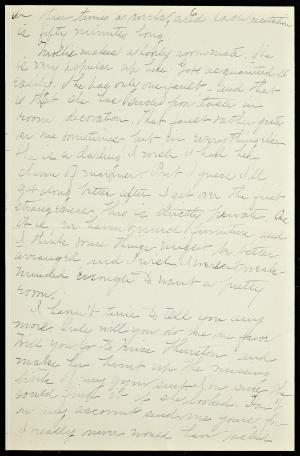 or three times a week, and each recitation
is fifty minutes long.
Mollie makes a lovely roommate. She
is very popular up here. Gets acquainted so
easily. She has only one fault. And that
is that she has decided poor taste in
room decoration. That fault rather grates
on me sometimes but in everything else
she is a darling. I wish I had her
charm of manner. But I guess I'll
get along better after I get over the first
strangeness. This is strictly private. As
it is, we haven't much furniture and
I think some things might be better
arranged and I wish I weren't weak-
minded enough to want a pretty
room.
I haven't time to tell you any
more but will you do me one favor
Will you go to Miss and
make her hunt up the missing
of my gym suit. I'm sure she
could find it if she looked. Don't
on any account send me yours, for
I really never would have asked